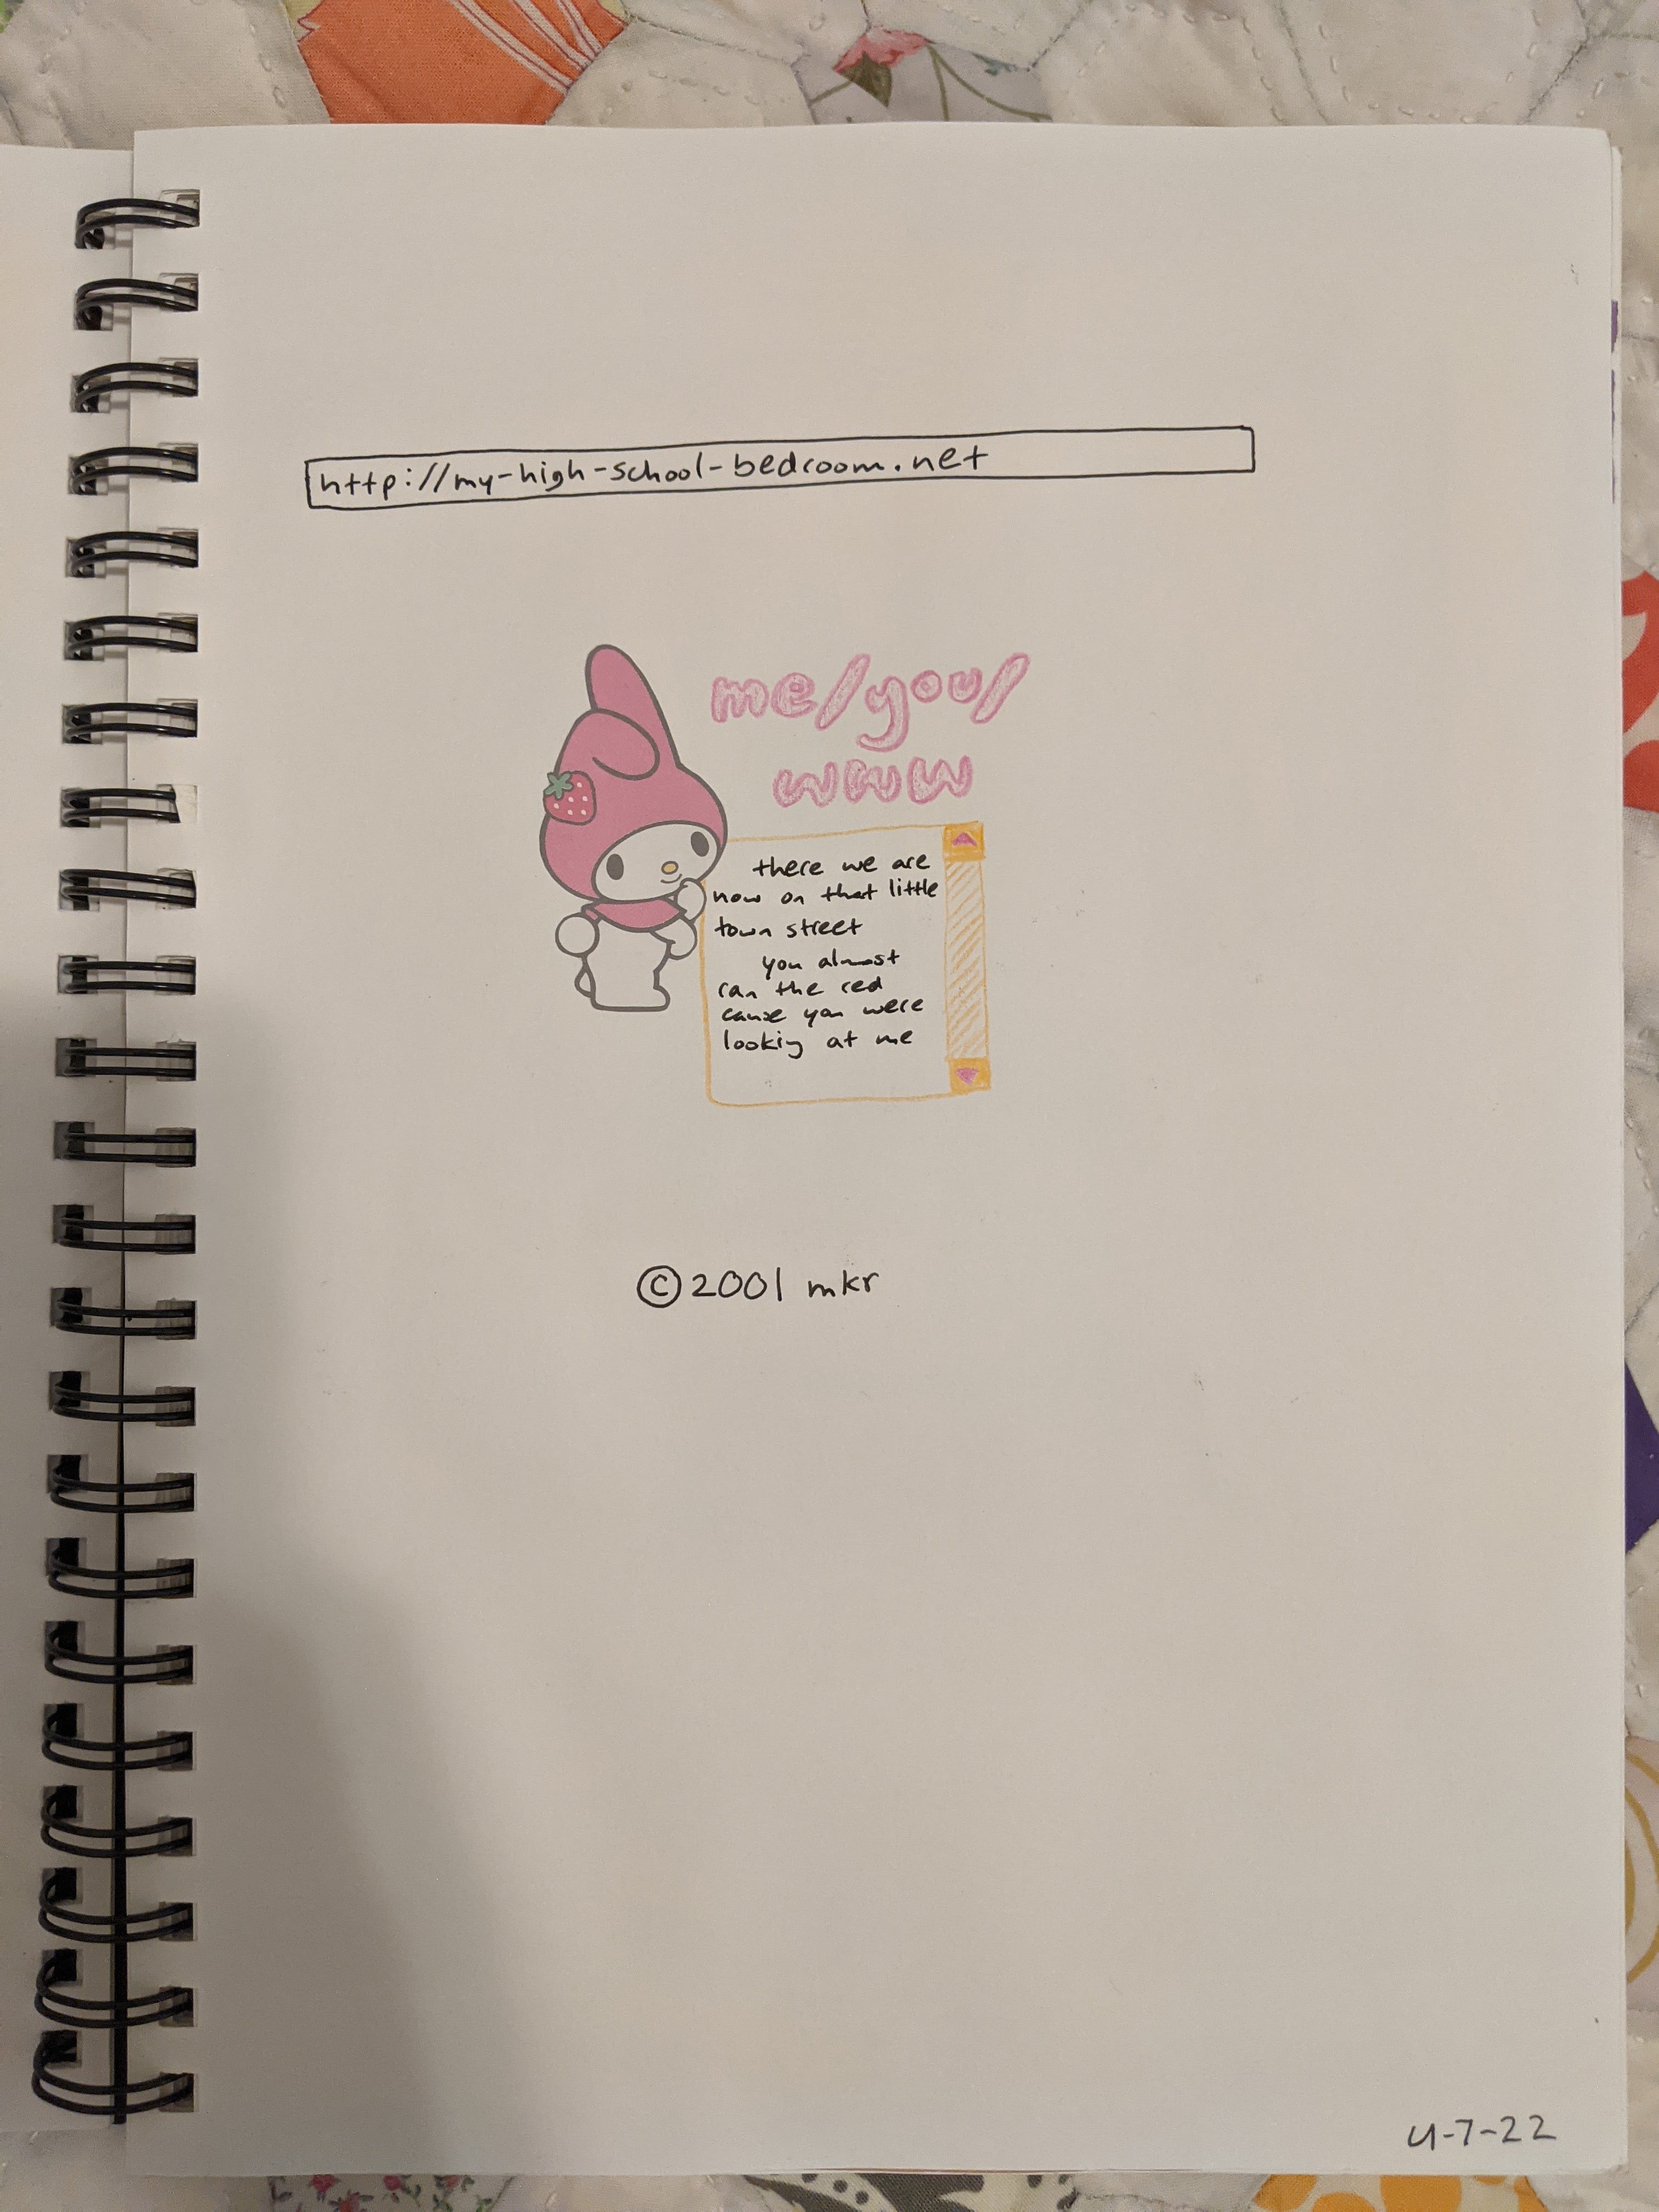 http://my-high-school-bedroom.net
me/you/
www
there we are
now on that little
town street
you almost
ran the red
cause you were
lookig at me
©2001 mkr
4-7-22